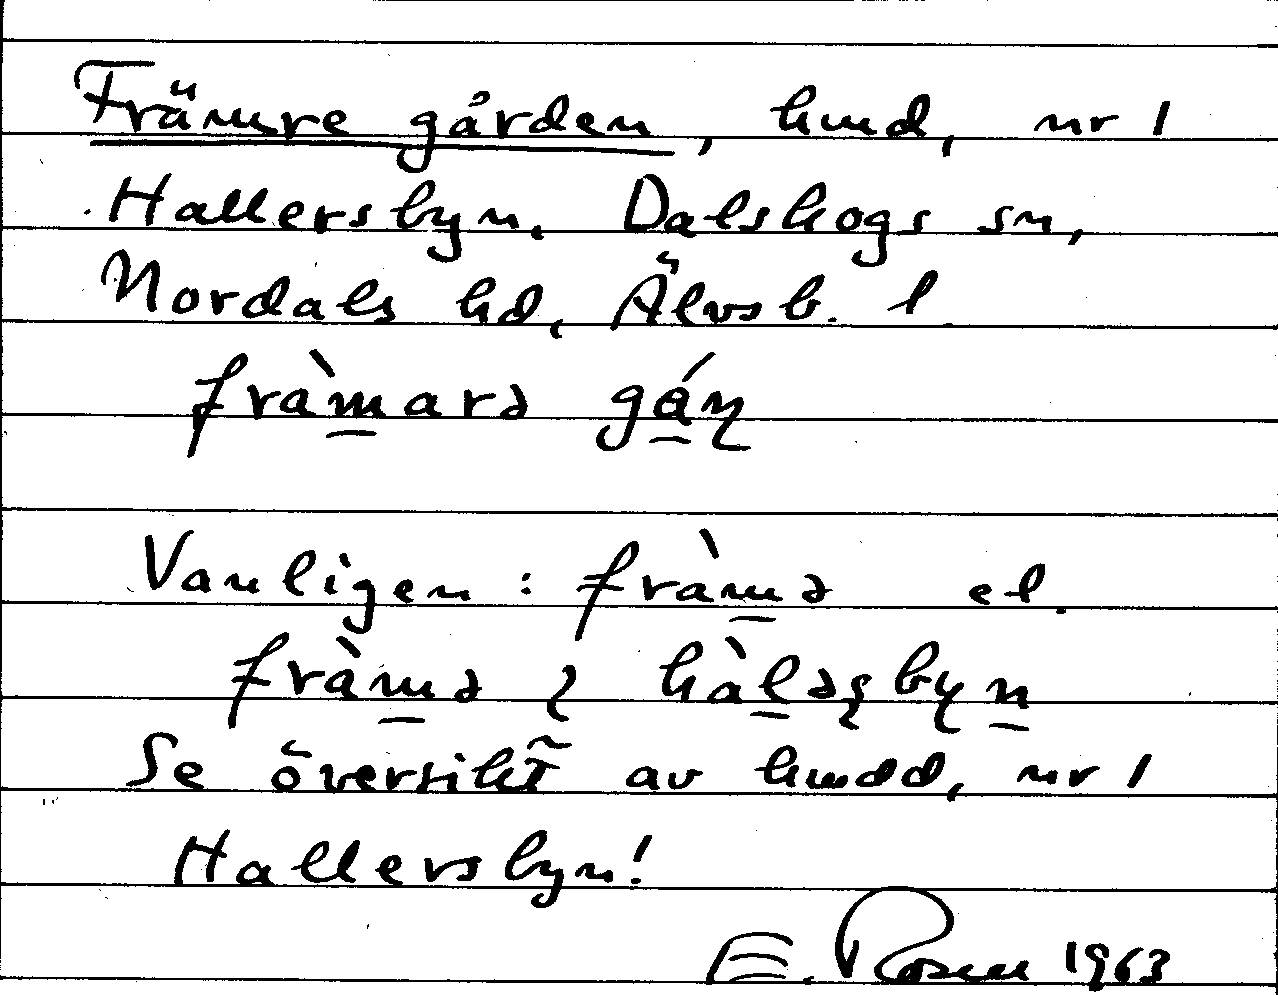 Främre gården, hmd, nr 1
Hallersbyn, Dalskogs sn,
Nordals hd, Älvsb. l
fràm̲arə gá̲ɳ
Vanligen: fràm̲ə el.
fràm̲ə i hàl̲əʂbyn̲
Se översikt av hmdd, nr 1
Hallersbyn!
E. Rosen 1963